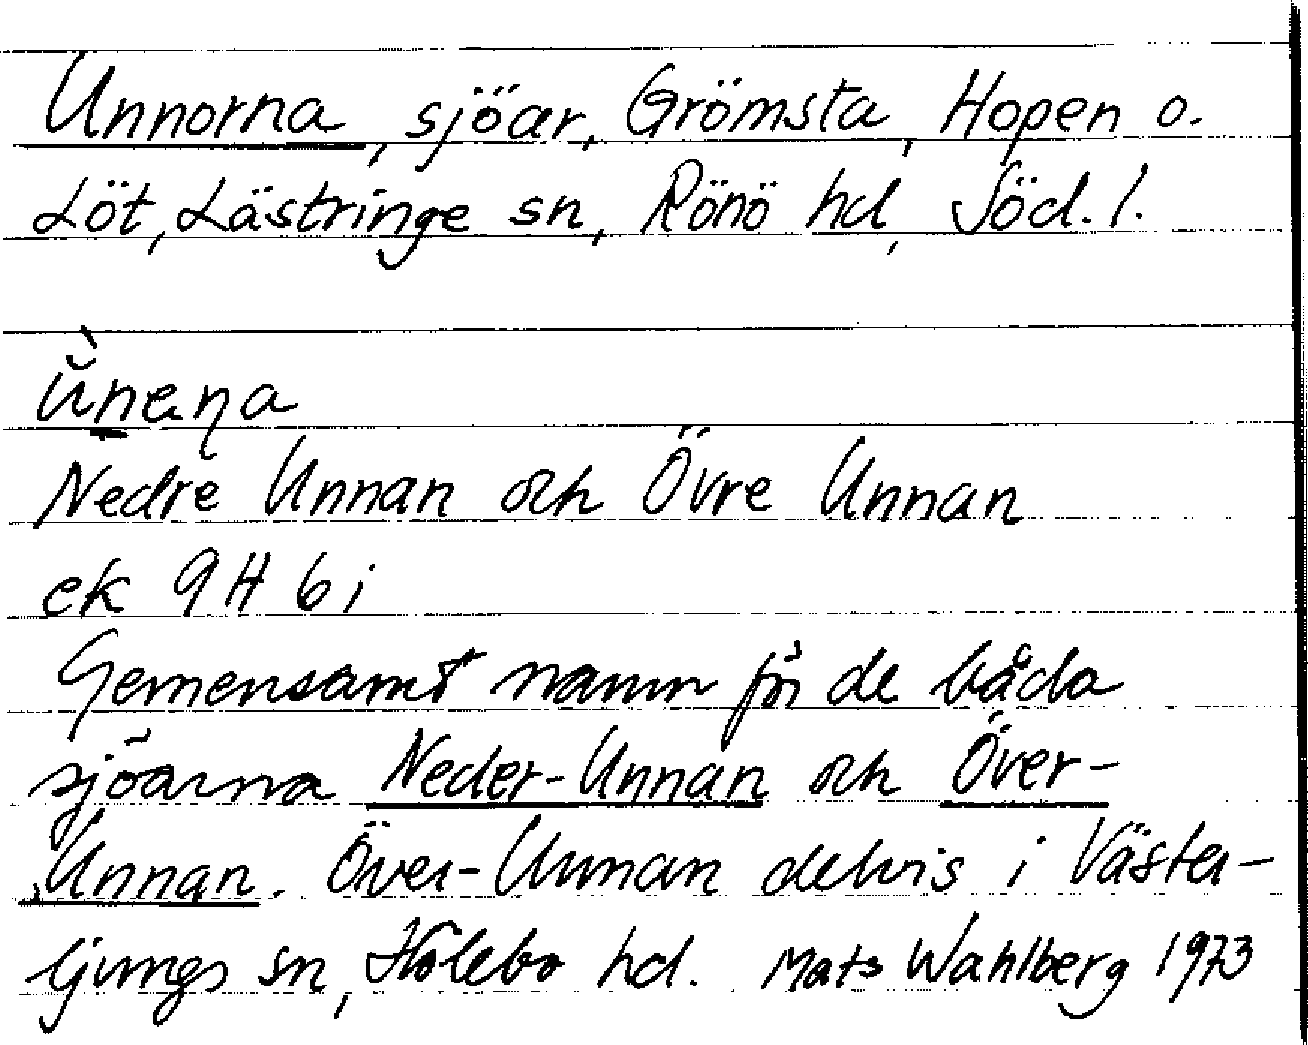 Unnorna, sjöar, Grömsta, Hopen o.
Löt, Lästringe sn, Rönö hd, Söd. l.
ùn̲aṇa
Nedre Unnan och Övre Unnan
ek 9H 6i
Gemensamt namn för de båda
sjöarna Neder-Unnan och Över-
Unnan. Över-Unnan delvis i Väster-
ljungs sn, Hölebo hd. Mats Wahlberg 1973